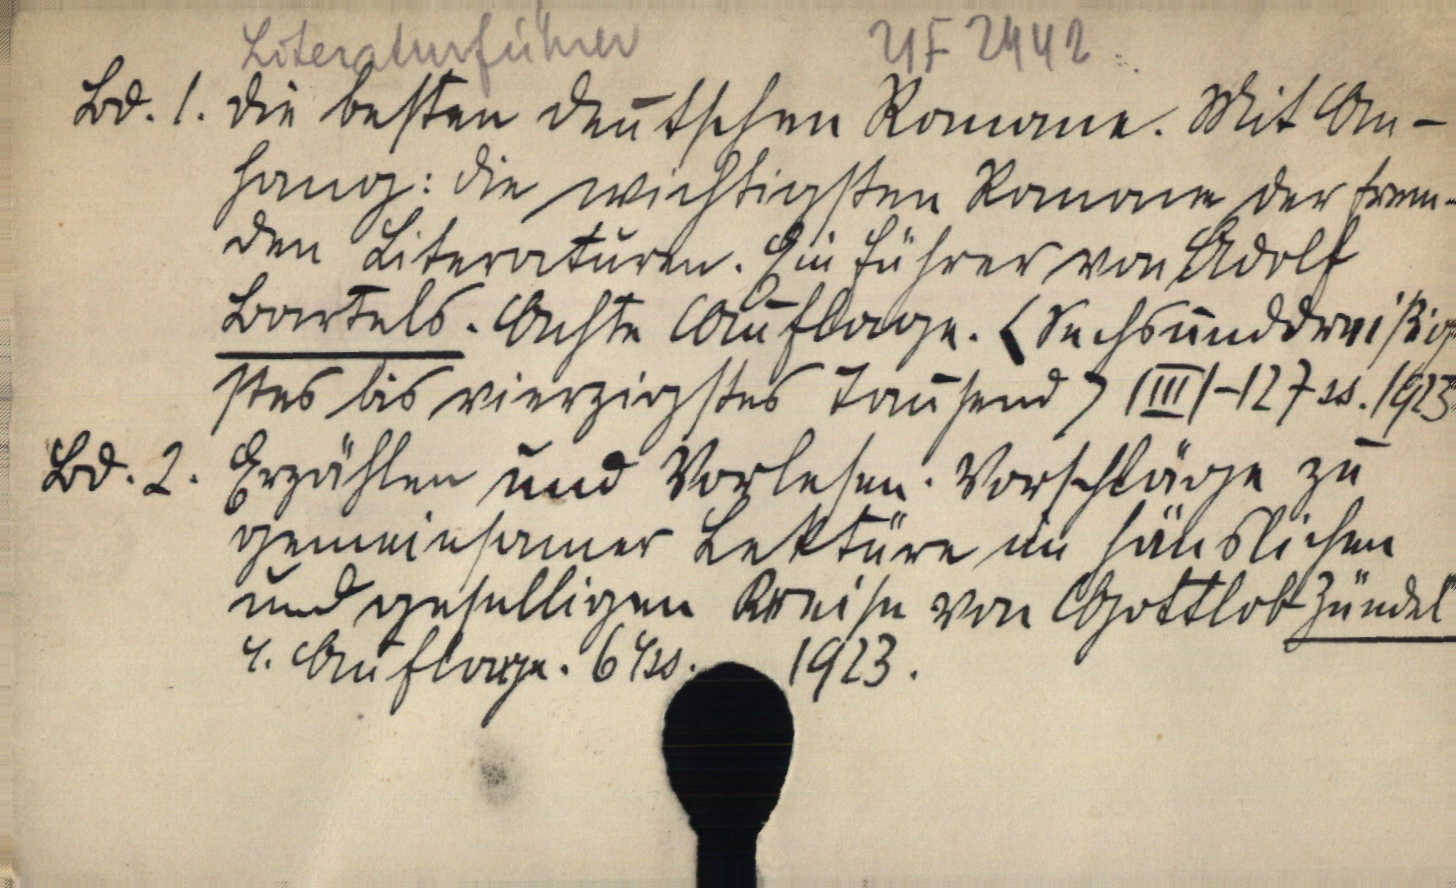 Literaturführer UF 2442
Bd. 1. Die besten deutschen Romane. Mit An-
hang: die wichtigsten Romane der frem-
den Literaturen. Ein Führer von Adolf
Bartels. Achte Auflage. (Sechsunddreißig-
stes bis vierzigstes Tausend) |III|-127 ss. 1923
Bd. 2. Erzählen und Vorlesen. Vorschläge zu
gemeinsamer Lektüre im häuslichen
und geselligen Kreise von Gottlob Zündel
4. Auflage. 64 ss. 1923.